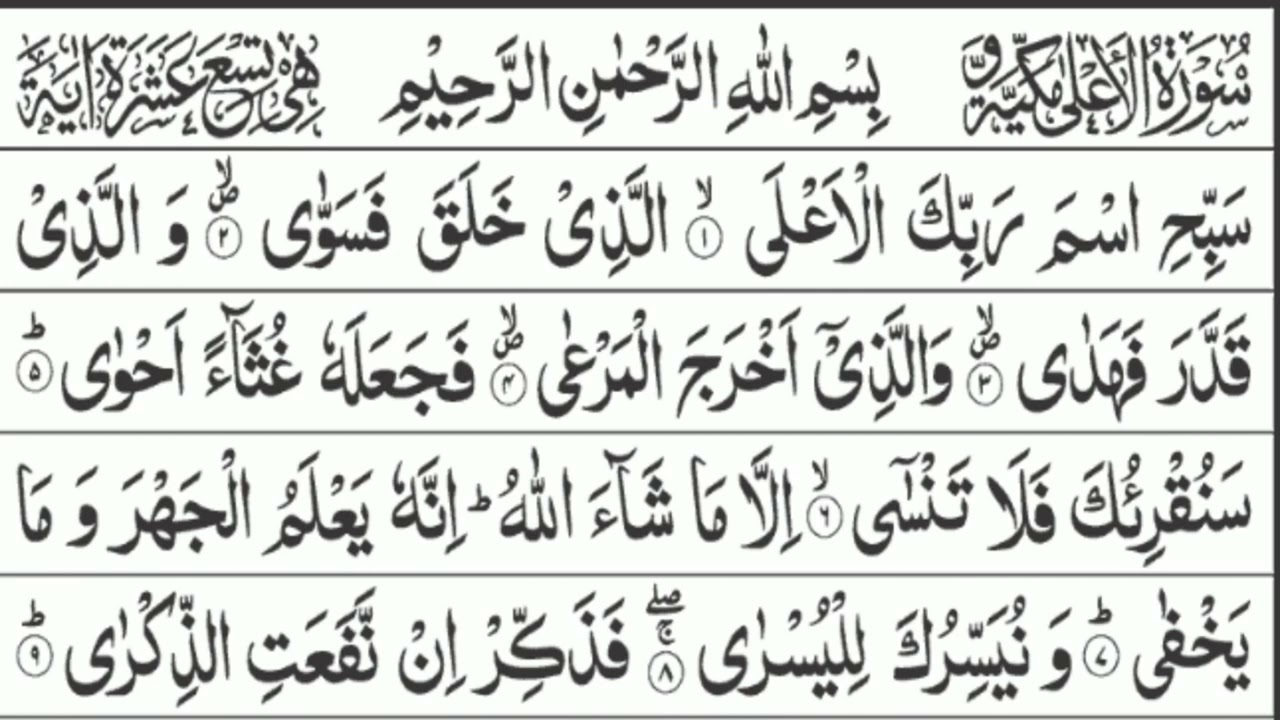 سُوْرَةُ الْاَعْلٰى مَكِّيَّةٌ وَّ بِسْمِ اللّٰهِ الرَّحْمٰنِ الرَّحِيْمِ هِىَ تِسْعَ عَشَرَةَ اٰيَةً
سَبِّحِ اسْمَ رَبِّكَ الْاَعْلَى ۙ﴿۱﴾ الَّذِىْ خَلَقَ فَسَوّٰى ۪ۙ﴿۲﴾ وَ الَّذِىْ
قَدَّرَ فَهَدٰى ۪ۙ﴿۳﴾ وَالَّذِىْۤ اَخْرَجَ الْمَرْعٰى ۪ۙ﴿۴﴾ فَجَعَلَهٗ غُثَآءً اَحْوٰى ؕ﴿۵﴾
سَنُقْرِئُكَ فَلَا تَنْسٰٓى ۙ﴿۶﴾ اِلَّا مَا شَآءَ اللّٰهُ ؕ اِنَّهٗ يَعْلَمُ الْجَهْرَ وَ مَا
يَخْفٰى ؕ﴿۷﴾ وَ نُيَسِّرُكَ لِلْيُسْرٰى ۚۖ﴿۸﴾ فَذَكِّرْ اِنْ نَّفَعَتِ الذِّكْرٰى ؕ﴿۹﴾